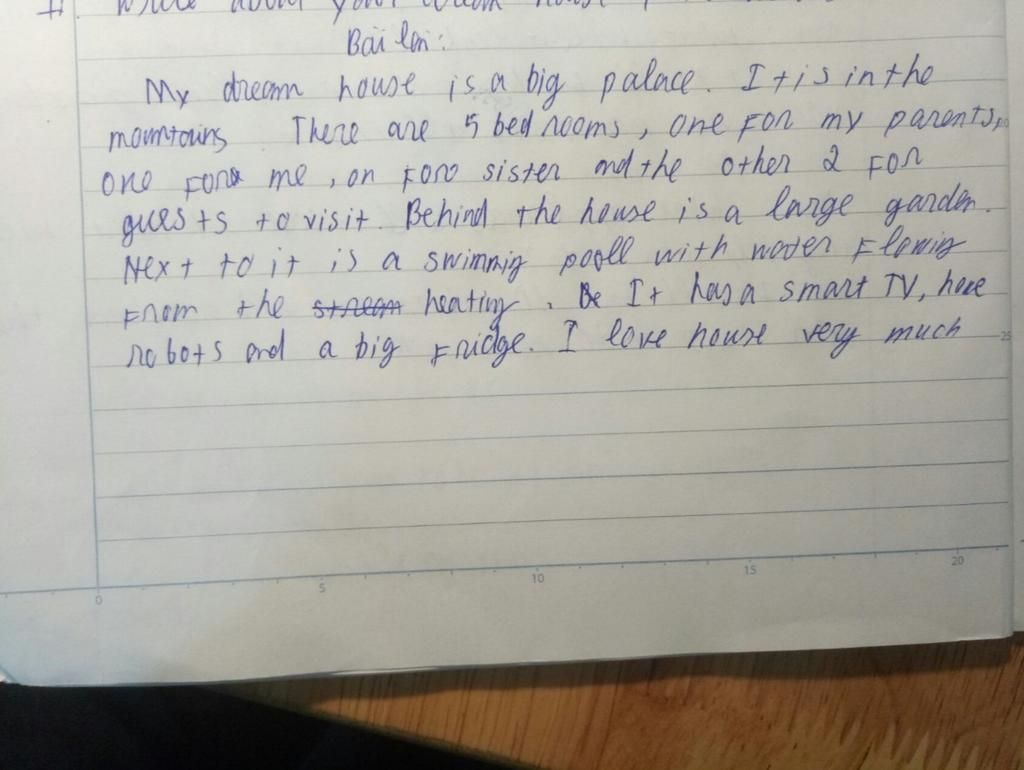 II. Write about your dream house
Bài làm:
My dream house is a big palace. It is in the
mountains There are 5 bedrooms, one for my parents,
one for me, on for sister and the other 2 for
guests to visit. Behind the house is a large garden.
Next to it is a swimmig pooll with water flowing
from the stream heating. Be It has a smart TV, have
robots and a big fridge. I love house very much
0 5 10 15 20
25